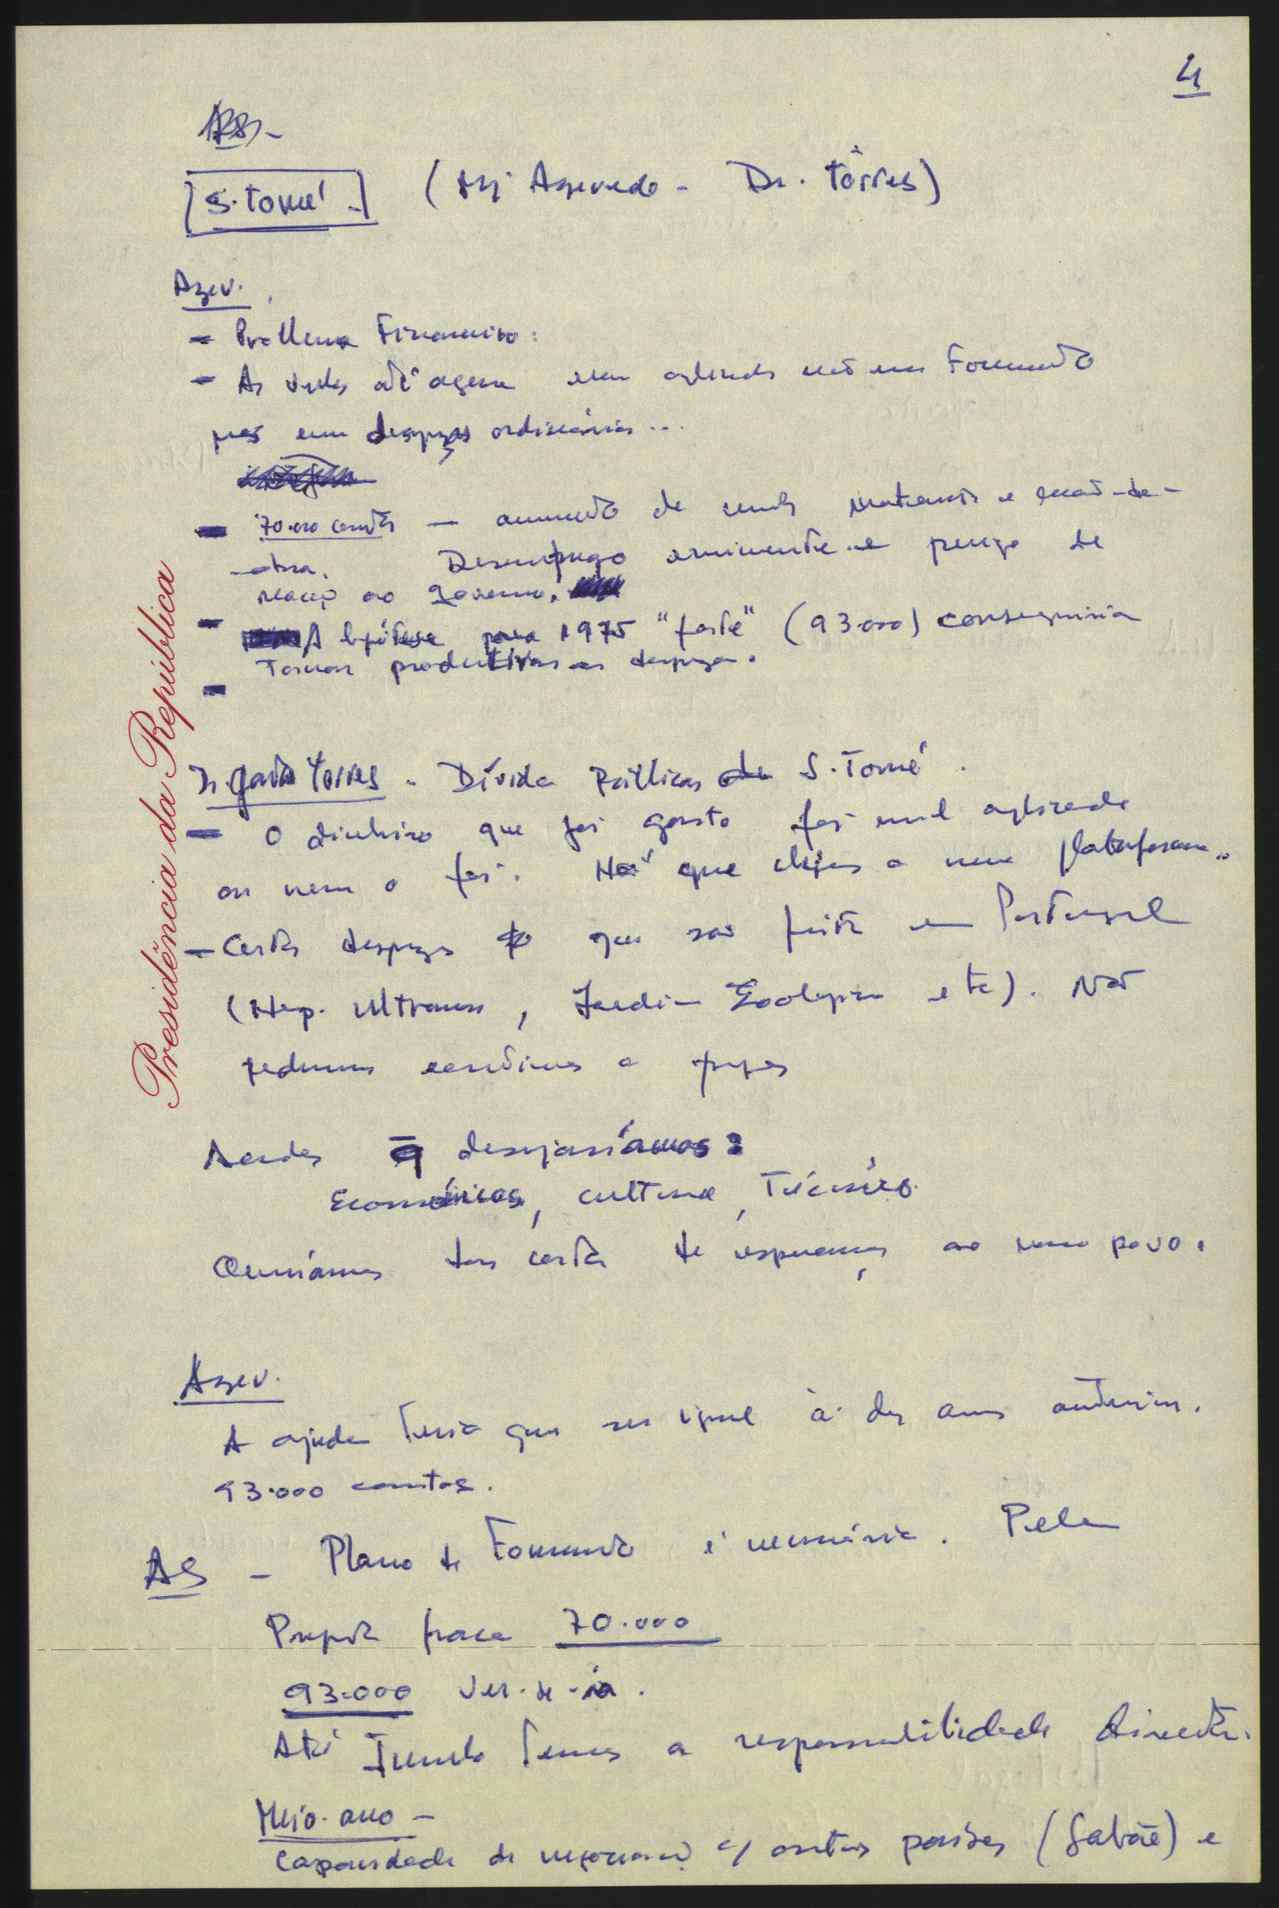 4
S. Tomé -
(Mj Azevedo - Dr. Tôrres)
Azev.
- Problema Financeiro:
- As verbas até agora eram aplicadas não em Fomento
mas em despezas ordinárias...
- 70.000 contos - aumento de materiais e mão-de-
-obra. Desemprego eminente e perigo de
reacç ao governo.
- A hipótese para 1975 "forte" (93.000) conseguiria
Tornar produtivas as despezas.
-
Presidência da República
Dr. Gasta Torres - Dívida Públicas de S. Tomé.
- O dinheiro que foi gasto foi mal aplicado
ou nem o foi. Há que chegar a uma plataforma..
- Certas despezas que são feitas em Portugal
(Hosp. Ultramar, Jardim Zoologico etc). Não
podemos continuar a pagar
Acordos q desejaríamos:
Económicos, cultural, Técnico.
Queríamos dar certa de esperança ao nosso povo.
Azev.
A ajuda teria que ser igual à dos anos anteriores.
93.000 contos.
AS - Plano de Fomento é necessário. Pela
Proposta fraca 70.000
93.000 Ver-se-ia.
Até Junho temos a responsabilidade directa.
Meio-ano -
Capacidade de negociação c/ outros países (Gabão) e